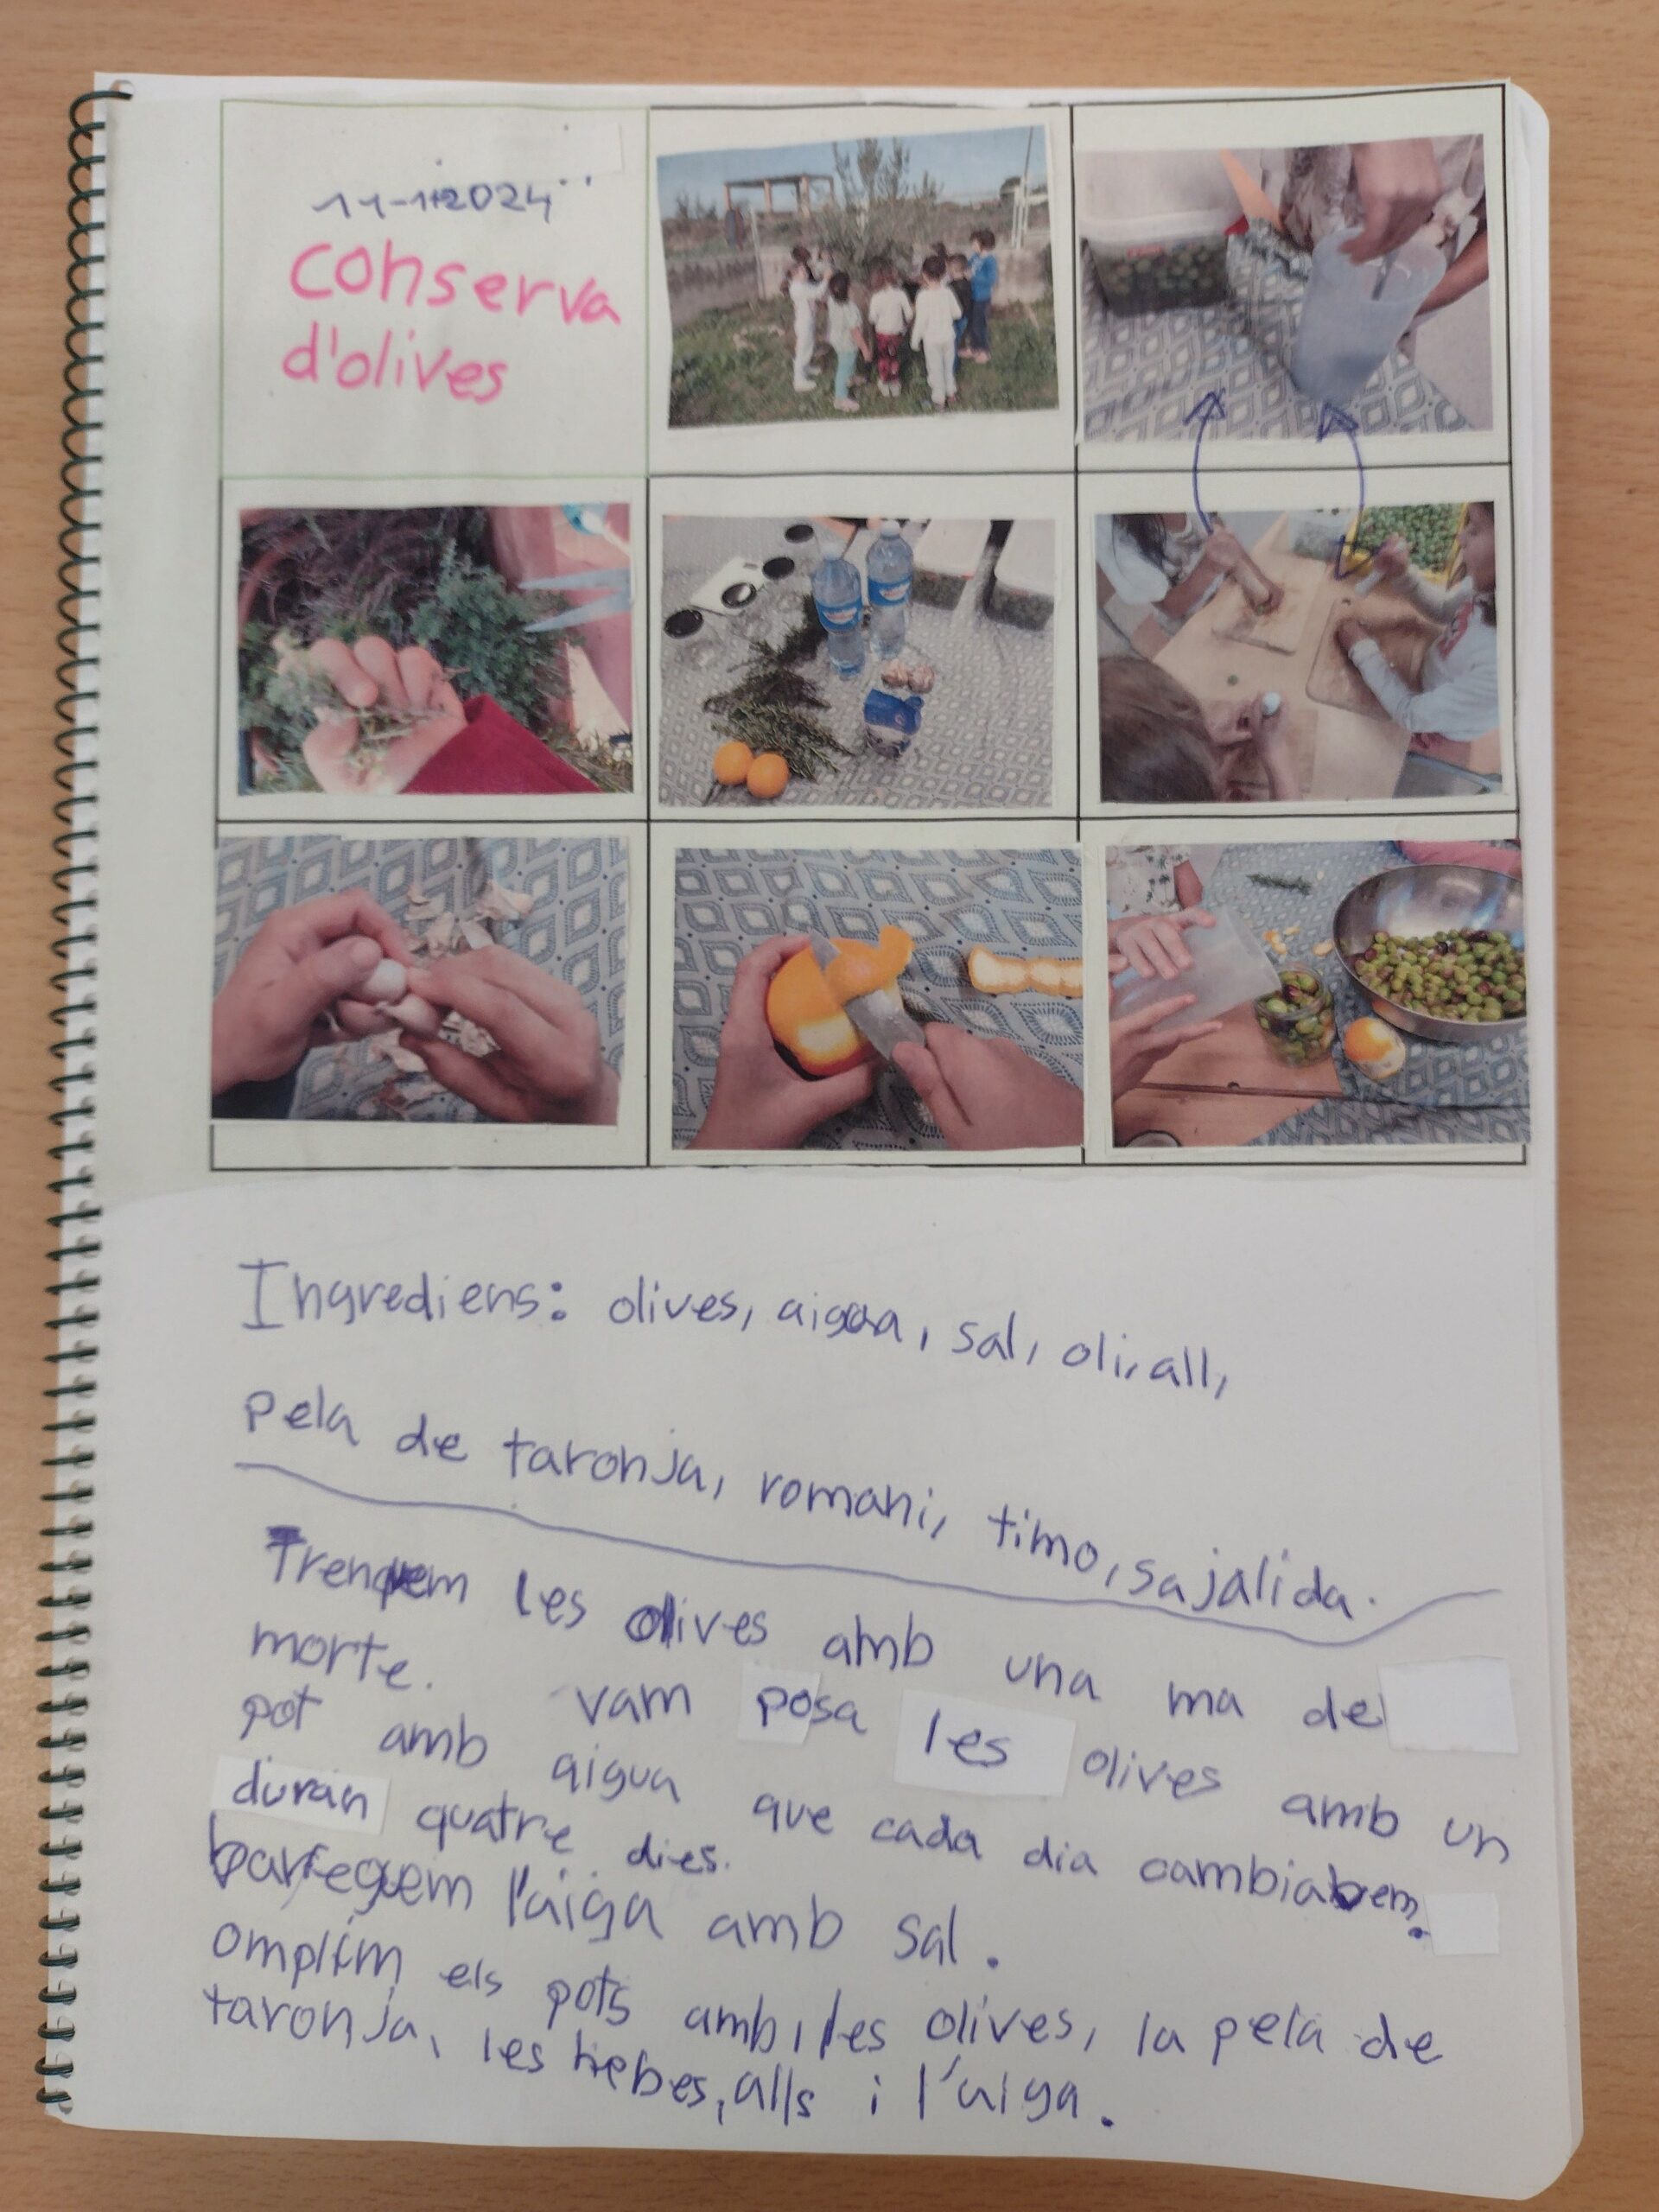 11-11-2024
conserva
d'olives
Ingrediens: olives, aigua, sal, oli, all,
pela de taronja, romani, timo, sajalida.
Trenquem les olives amb una ma de
morte. vam posa les olives amb un
pot amb aigua que cada dia cambiabem.
duran quatre dies.
barreguem l'aiga amb sal.
omplim els pots amb les olives, la pela de
taronja, les hebes, alls i l'aiga.